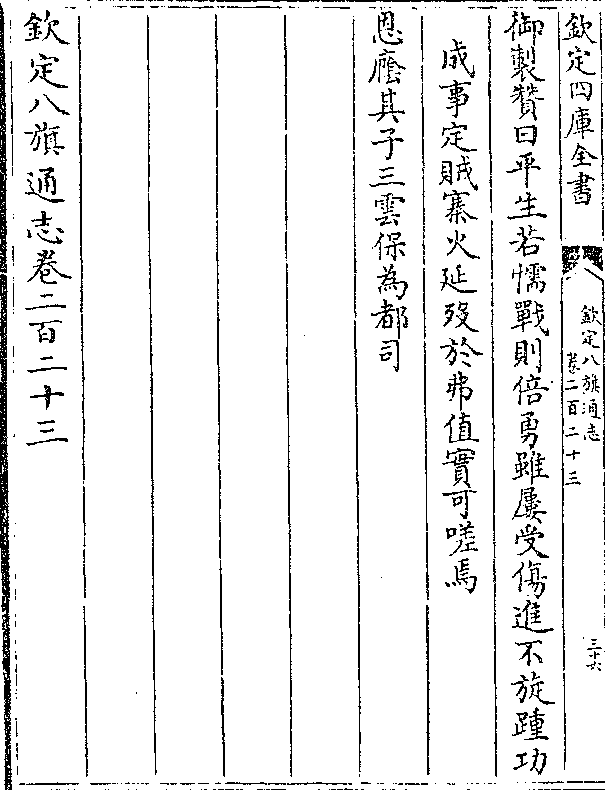 欽定四庫全書
欽定八旗通志
卷二百二十三
三十六
御製贊曰平生若懦戰則倍勇雖屢受傷進不旋踵功
成事定賊寨火延殁於弗值實可嗟焉
恩廕其子三雲保為都司
欽定八旗通志卷二百二十三